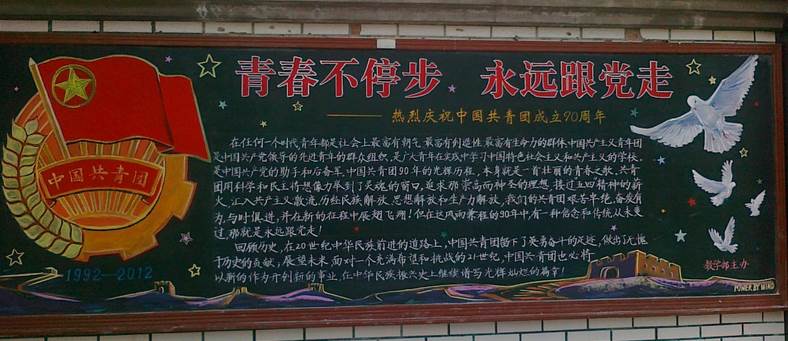 青春不停步 永远跟党走
——热烈庆祝中国共青团成立90周年
在任何一个时代青年都是社会上最富有朝气最富有创造性最富有生命力的群体.中国共产主义青年团
是中国共产党领导的先进青年的群众组织,是广大青年在实践中学习中国特色社会主义和共产主义的学校.
是中国共产党的助手和后备军.中国共青团90年的光辉历程,本身就是一首壮丽的青春之歌.共青
团用科学和民主将想像力牵到了灵魂的窗口,追求那崇高而神圣的理想.接过五四精神的薪
火,汇入共产主义激流,历经民族解放 思想解放和生产力解放,我们的共青团艰苦卓绝,奋发有
为,与时俱进,并在新的征程中展翅飞翔!但在这风雨兼程的90年中,有一种信念和传统从未变
过,那就是永远跟党走!
回顾历史,在20世纪中华民族前进的道路上,中国共青团留下了英勇奋斗的足迹,做出了无愧
于历史的贡献,展望未来,面对一个充满希望和挑战的21世纪,中国共青团也必将
以新的作为开创新的事业,在中华民族振兴史上继续谱写光辉灿烂的篇章!
中国共青团
1992-2012
教学部主办
POWER BY MIND